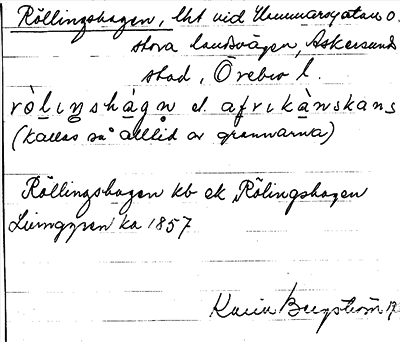 Röllingshagen, lht vid Hammarsgatan o.
stora landsvägen, Askersunds
stad, Örebro l.
ròli̠ŋshàgn el. afrikànskans
(kallas så alltid av grannarna)
Röllingshagen kb ek, Rölingshagen
Ljunggren ka 1857
Karin Bergström